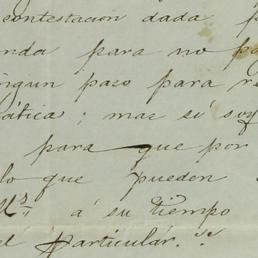 contestacion dada p
onda para no po
ingun paso para r
ática; mas sí soy
para que por
lo que pueden
Us. á su tiempo
el particular.